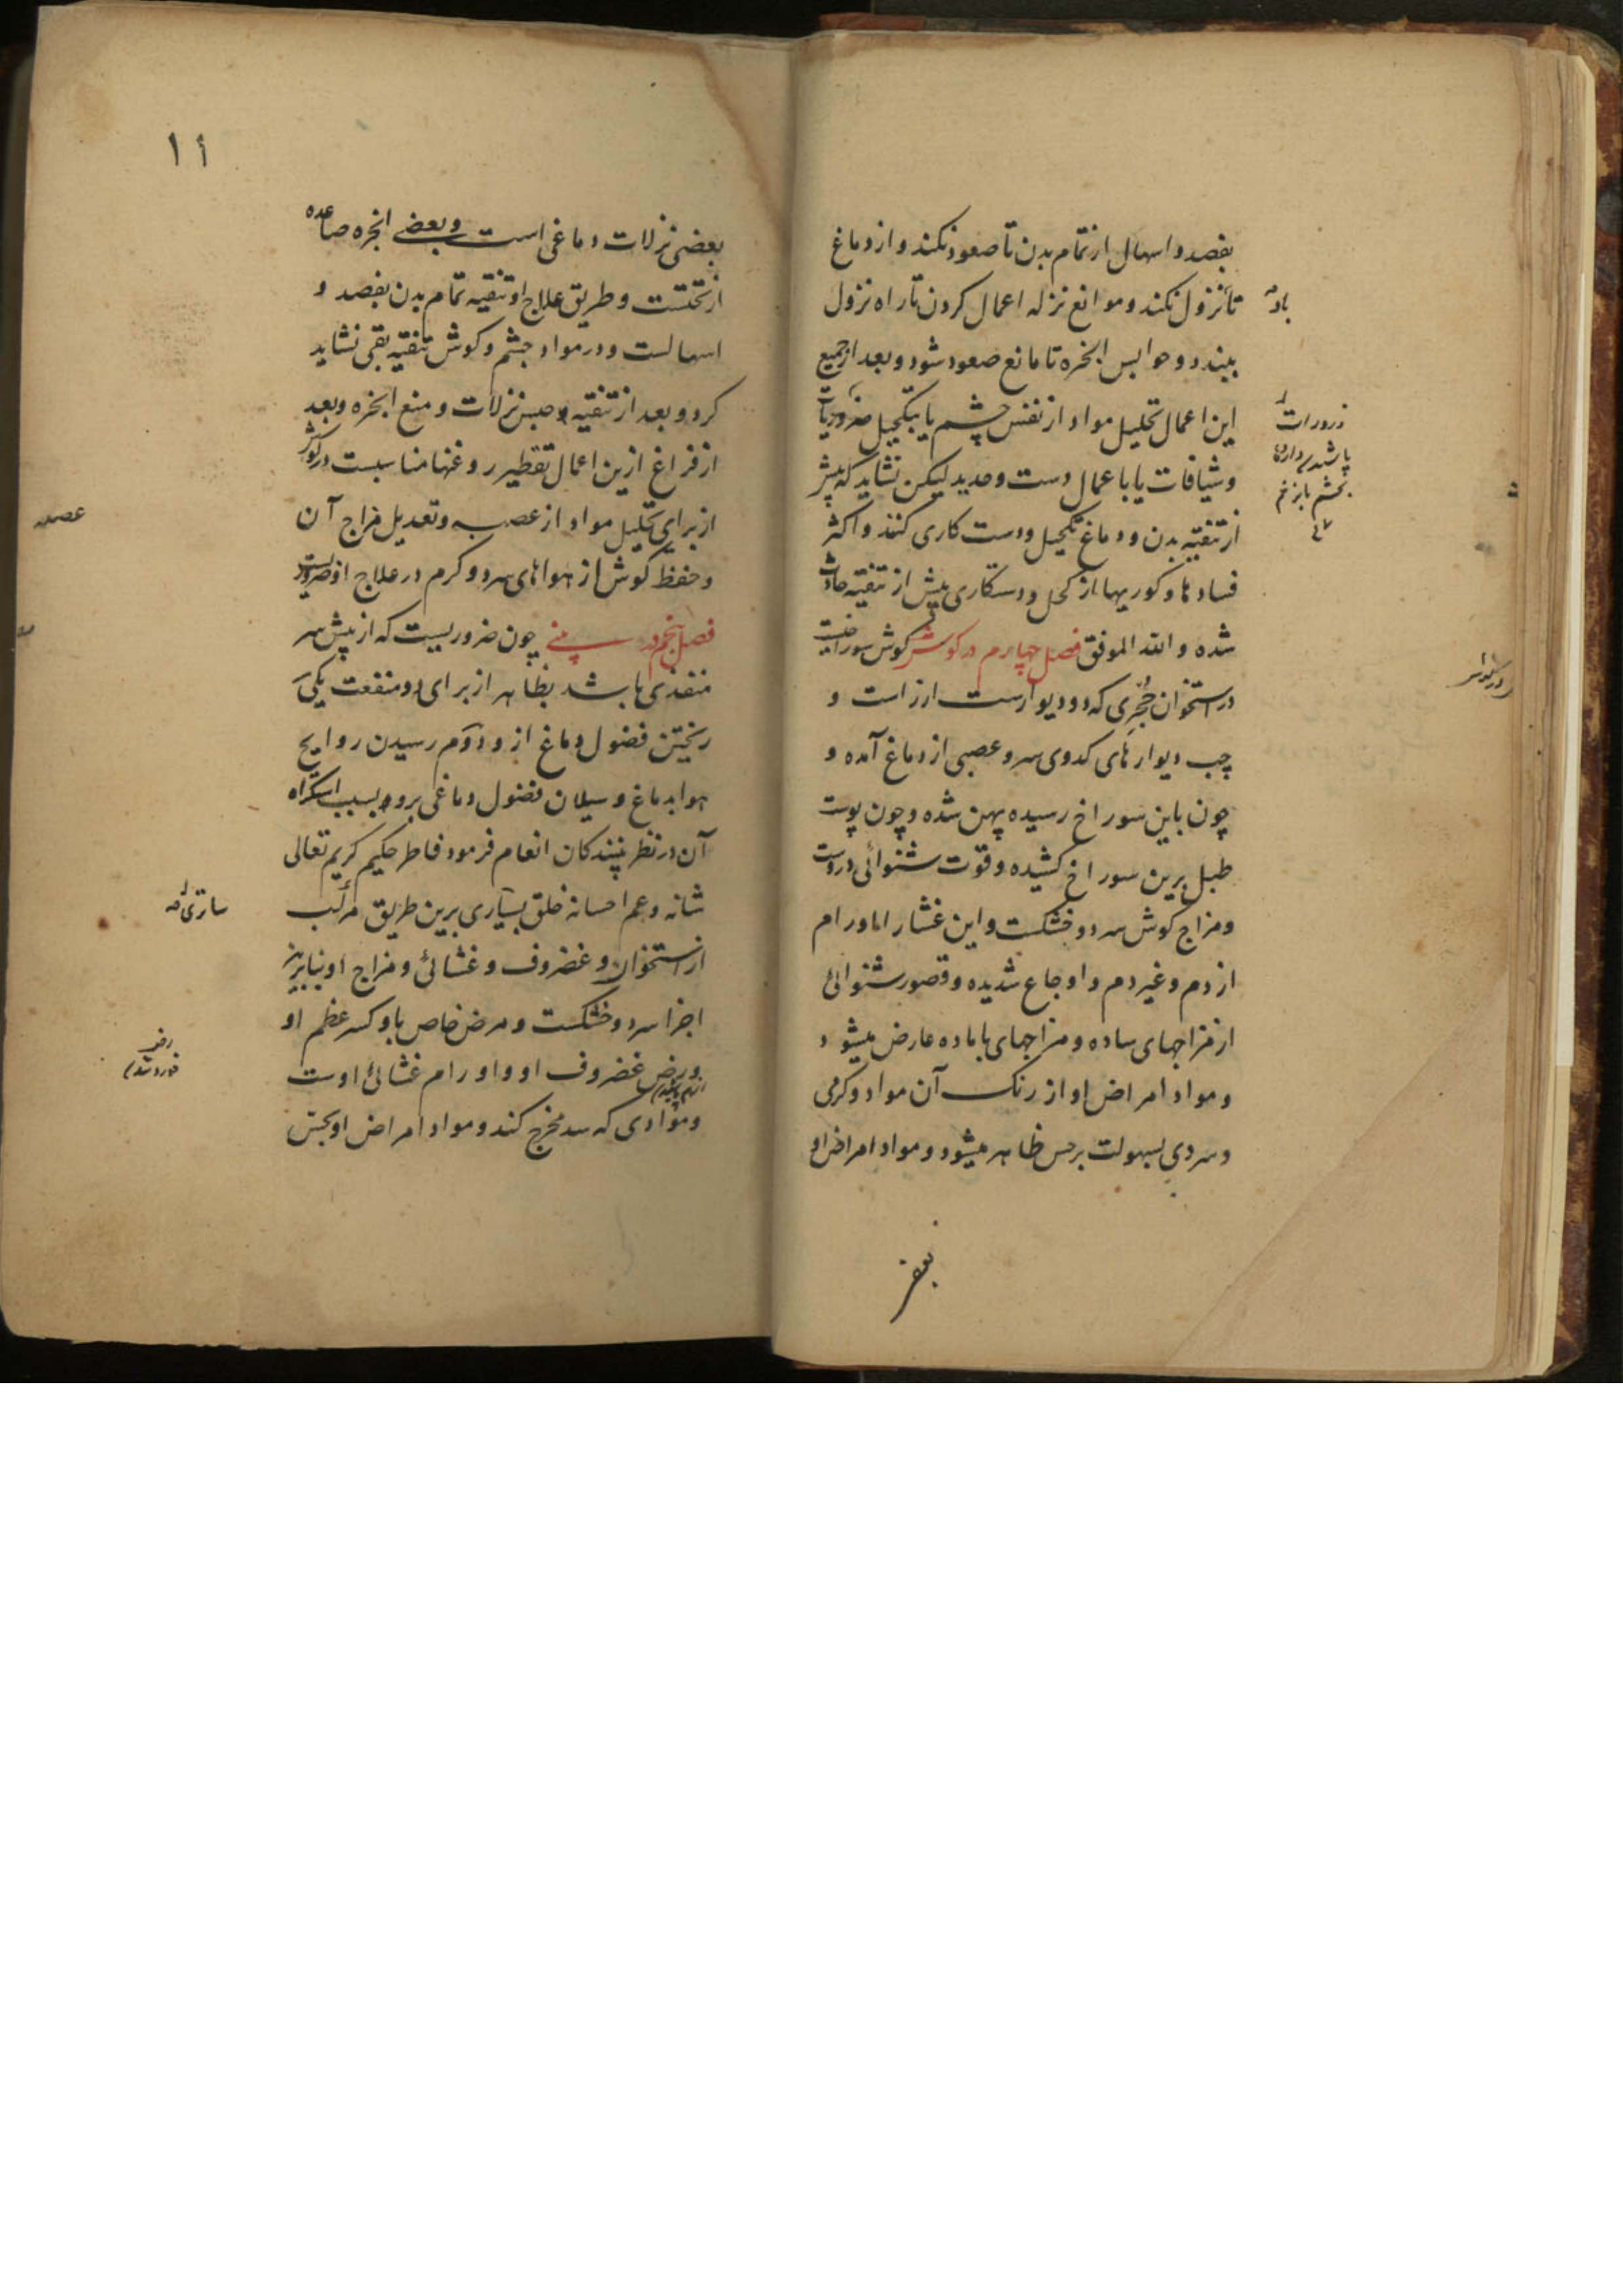 بفصد و اسهال از تمام بدن تا صعود نکند و از دماغ
تا نزول نکند و موانع نزله اعمال کردن تا راه نزول
ببندد و حوابس ابخره تا مانع صعود شود و بعد از جمیع
این اعمال تحلیل مواد از نفس چشم یا بتکحیل ضرورات
و شیافات یا باعمال دست و حدید لیکن نشاید که پیش
از تنقیه بدن و دماغ تکحیل و دست کاری کنند و اکثر
فسادها و کوریها از کحل و دستکاری پیش از تنقیه حادث
شده و الله الموفق فصل چهارم در کوش کوش سوراخیست
در استخوان حجری که دو دیوارست ارزاست و
چپ دیوارهای کدوی سر و عصبی از دماغ آمده و
چون باین سوراخ رسیده پهن شده و چون پوست
طبل برین سوراخ کشیده و قوت شنوائی دروست
و مزاج کوش سرد و خشکست و این غشا را اما ورام
از دم و غیر دم و اوجاع شدیده و قصور شنوائی
از مزاجهای ساده و مزاجهای با ماده عارض میشود
و مواد امراض او از رنک آن مواد و کرمی
و سردی بسهولت بر حس ظاهر میشود و مواد امراض او
بعضی
ذرورات
پاشیدن
بچشم یا زخم
۱۱
بعضی نزلات دماغی است و بعضی ابخره صاعده
از تحتست و طریق علاج او تنقیه تمام بدن بفصد و
اسهالست و در مواد چشم و کوش تنقیه بقی نشاید
کرد و بعد از تنقیه و حبس نزلات و منع ابخره و بعد
از فراغ ازین اعمال تقطیر روغنها مناسبست در کوش
از برای تحلیل مواد از عصب و تعدیل مزاج آن
و حفظ کوش از هواهای سرد و کرم در علاج او ضروریست
فصل پنجم در بینی چون ضروریست که از پیش سر
منفذی باشد بظاهر از برای دو منفعت یکی
ریختن فضول دماغ از و دوم رسیدن روایح
هوا بدماغ و سیلان فضول دماغی برو بسبب استکراه
آن در نظر بینندکان انعام فرمود فاطر حکیم کریم تعالی
شانه و عم احسانه خلق بسیاری برین طریق مرکب
از استخوان و غضروف و غشائی و مزاج او بنابرین
اجزا سرد و خشکست و مرض خاص باو کسر عظم او
و رض غضروف او و اورام غشائی اوست
و موادی که سد مخرج کند و مواد امراض او بجنس